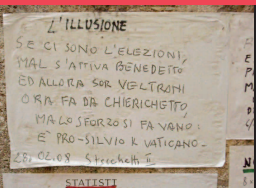 L'ILLUSIONE
SE CI SONO L'ELEZIONI,
MAL S'ATTIVA BENEDETTO
ED ALLORA SOR VELTRONI
ORA FA DA CHIERICHETTO,
MA LO SFORZO SI FA VANO:
È PRO-SILVIO IL VATICANO.
28.02.08 Stecchetti II
STATISTI